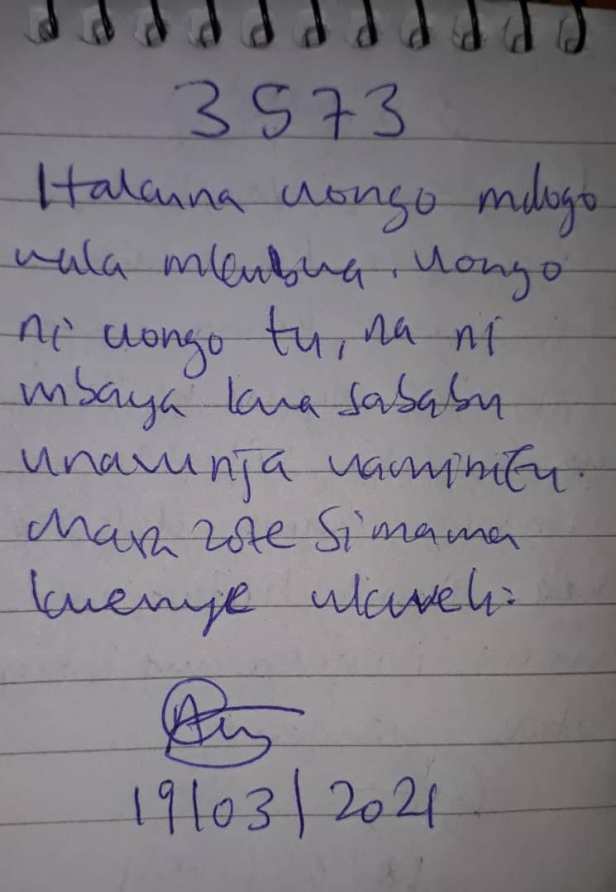 3573
Hakuna uongo mdogo
wala mkubwa. Uongo
ni uongo tu, na ni
mbaya kwa sababu
unavunja uaminifu.
Mara zote Simama
kwenye ukweli.
19/03/2021